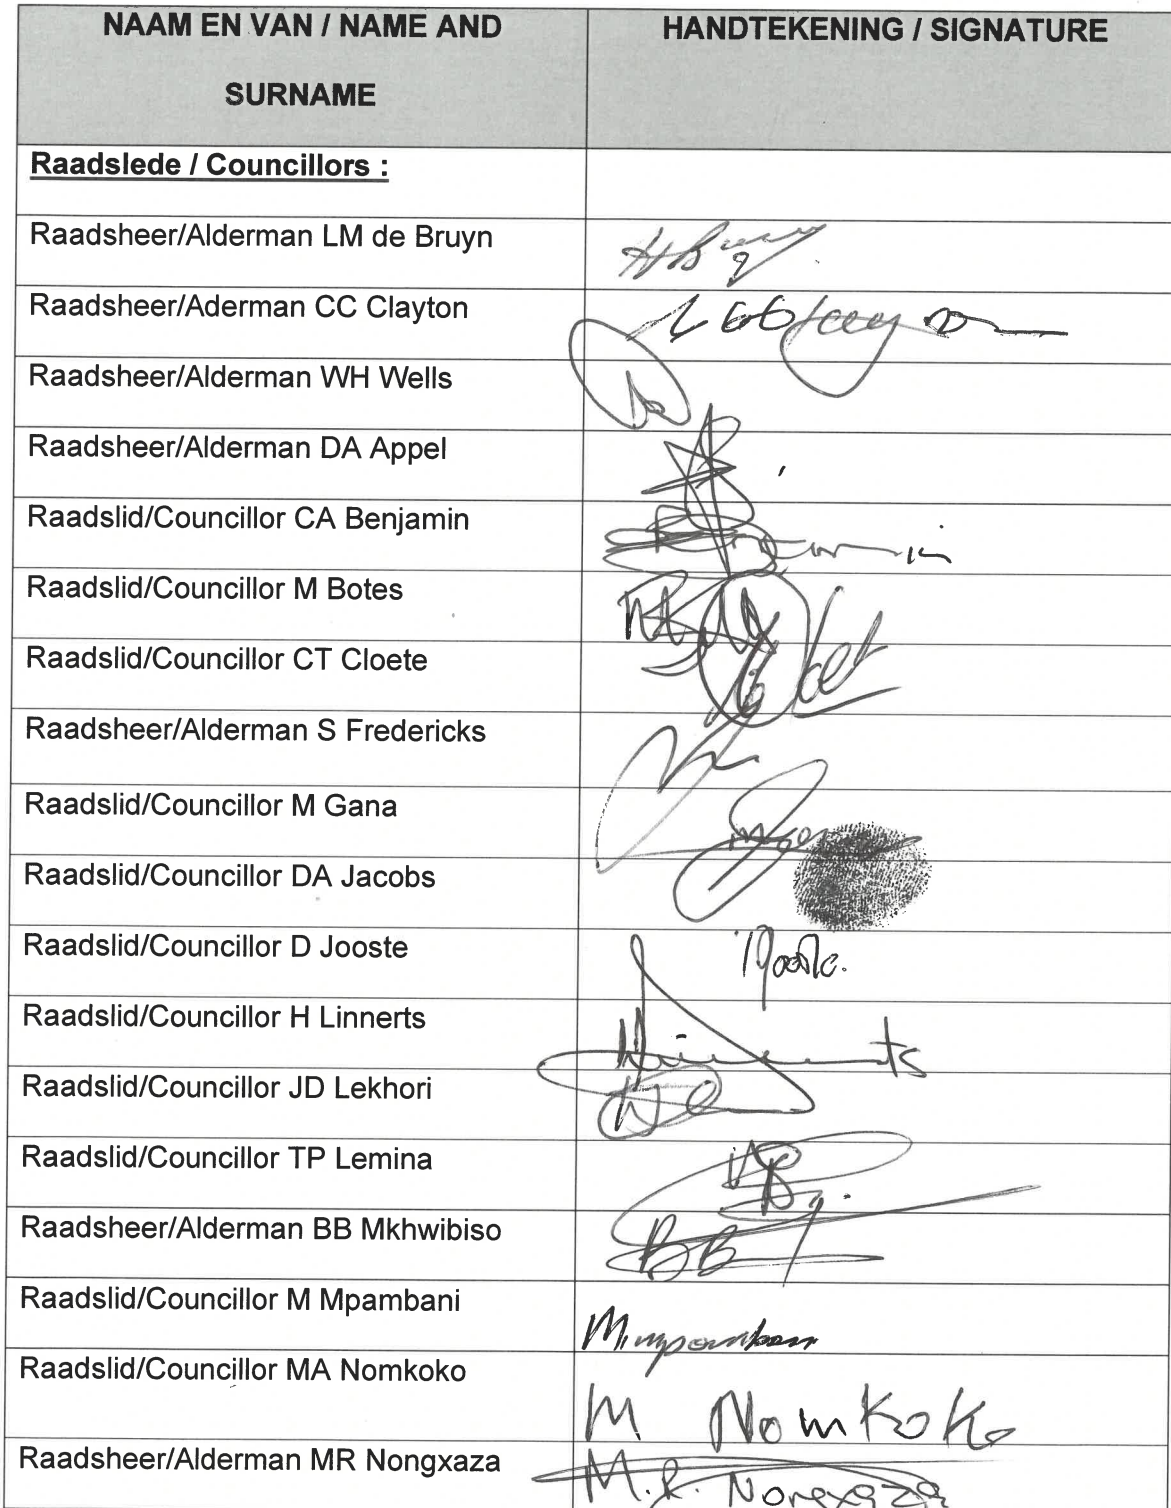 NAAM EN VAN / NAME AND
SURNAME
HANDTEKENING / SIGNATURE
Raadslede / Councillors :
Raadsheer/Alderman LM de Bruyn
Raadsheer/Aderman CC Clayton
Raadsheer/Alderman WH Wells
Raadsheer/Alderman DA Appel
Raadslid/Councillor CA Benjamin
Raadslid/Councillor M Botes
Raadslid/Councillor CT Cloete
Raadsheer/Alderman S Fredericks
Raadslid/Councillor M Gana
Raadslid/Councillor DA Jacobs
Raadslid/Councillor D Jooste
Raadslid/Councillor H Linnerts
Raadslid/Councillor JD Lekhori
Raadslid/Councillor TP Lemina
Raadsheer/Alderman BB Mkhwibiso
Raadslid/Councillor M Mpambani
Raadslid/Councillor MA Nomkoko
M Nomkoko
Raadsheer/Alderman MR Nongxaza
M.R. Nongxaza